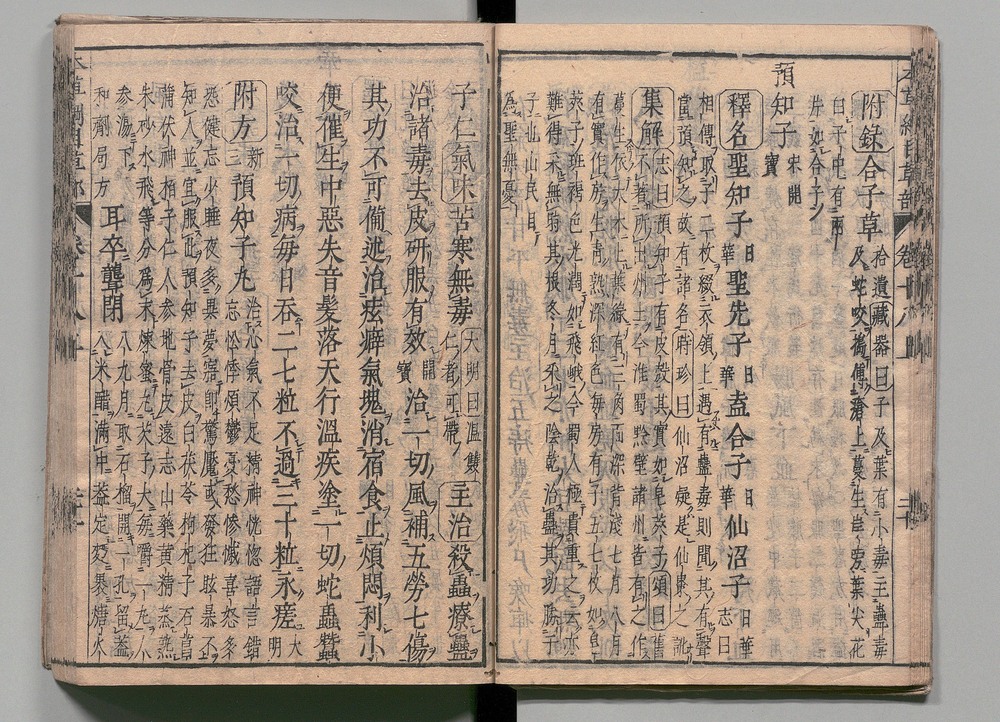 附錄合子草 拾遺藏器曰子及葉有小毒主蠱毒
及蛇咬搗傅瘡上蔓生岸旁葉尖花
白子中有兩
片如合子
預知子 宋開寶
釋名聖知子日華聖先子日華盍合子日華仙沼子日華志曰
相傳取子二枚綴衣領上遇有蠱毒則聞其有聲
當預知之故有諸名時珍曰仙沼疑是仙棗之訛
集解志曰預知子有皮殼其實如皂莢子頌曰舊
不著所出州土今淮蜀黔壁諸州皆有之作
蔓生依大木上葉綠有三角面深背淺七月八月
有實作房生青熟深紅色每房有子五七枚如皂
莢子斑褐色光潤如飛蛾今蜀人極貴重之云亦
難得采無時其根冬月采之陰乾治蠱其功勝于
子也山民目
為聖無憂
卷十八上 二十
子仁氣味苦寒無毒大明曰溫雙仁者可帶主治殺蟲療蠱
治諸毒去皮研服有效開寶治一切風補五勞七傷
其功不可備述治痃癖氣塊消宿食止煩悶利小
便催生中惡失音髮落天行溫疾塗一切蛇蟲蠶
咬治一切病每日吞二七粒不過三十粒永瘥大明
附方新三預知子丸治心氣不足精神恍惚語言錯
忘忪悸煩鬱憂愁慘慼喜怒多
恐健忘少睡夜多異夢寤即驚魘或發狂眩暴不
知人並宜服此預知子去皮白茯苓枸杞子石菖
蒲茯神柏子仁人參地骨皮遠志山藥黃精蒸熟
朱砂水飛等分為末煉蜜丸芡子大每嚼一丸人
參湯下
和劑局方耳卒聾閉八九月取石榴開一孔留蓋
入米醋滿中蓋定麪裹煻火